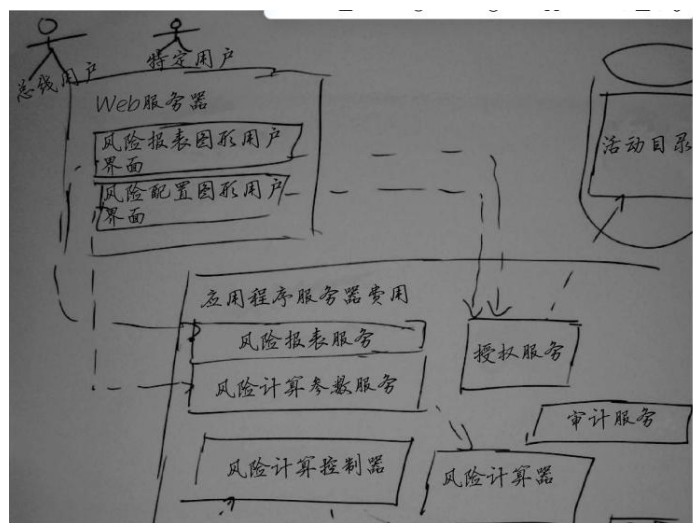 特定用户
总线用户
Web服务器
风险报表图形用户
界面
风险配置图形用户
界面
活动目录
应用程序服务器费用
风险报表服务
授权服务
风险计算参数服务
审计服务
风险计算控制器
风险计算器